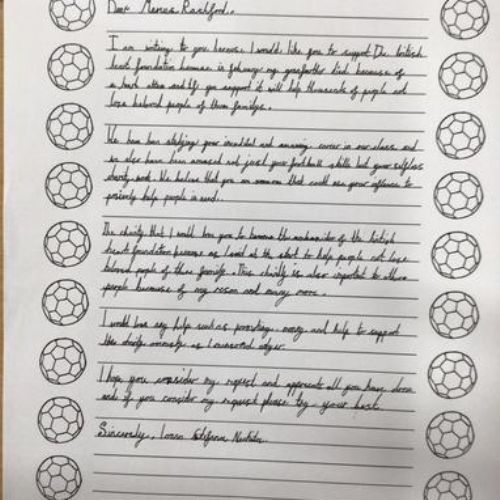 Dear Marcus Rashford,
I am writing to you because I would like you to support The british
heart foundation because in february my grandfather died because of
a heart attack and if you support it will help thousands of people not
lose beloved people of there familys.
We have been studying your incredible and amazing career in our class and
we also have been amazed not just your football skills but your selfless
charity work. We believe that you are someone that could use your influence to
positively help people in need.
The charity that I would love you to become the ambassador of the british
heart foundation because as I said at the start to help people not lose
beloved people of there family. This charity is also important to other
people because of my reason and many more.
I would love any help such as promoting, money and help to support
this charity as I mentioned
I hope you consider my request and appreciate all you have done
and if you consider my request please try your best.
Sincerely,